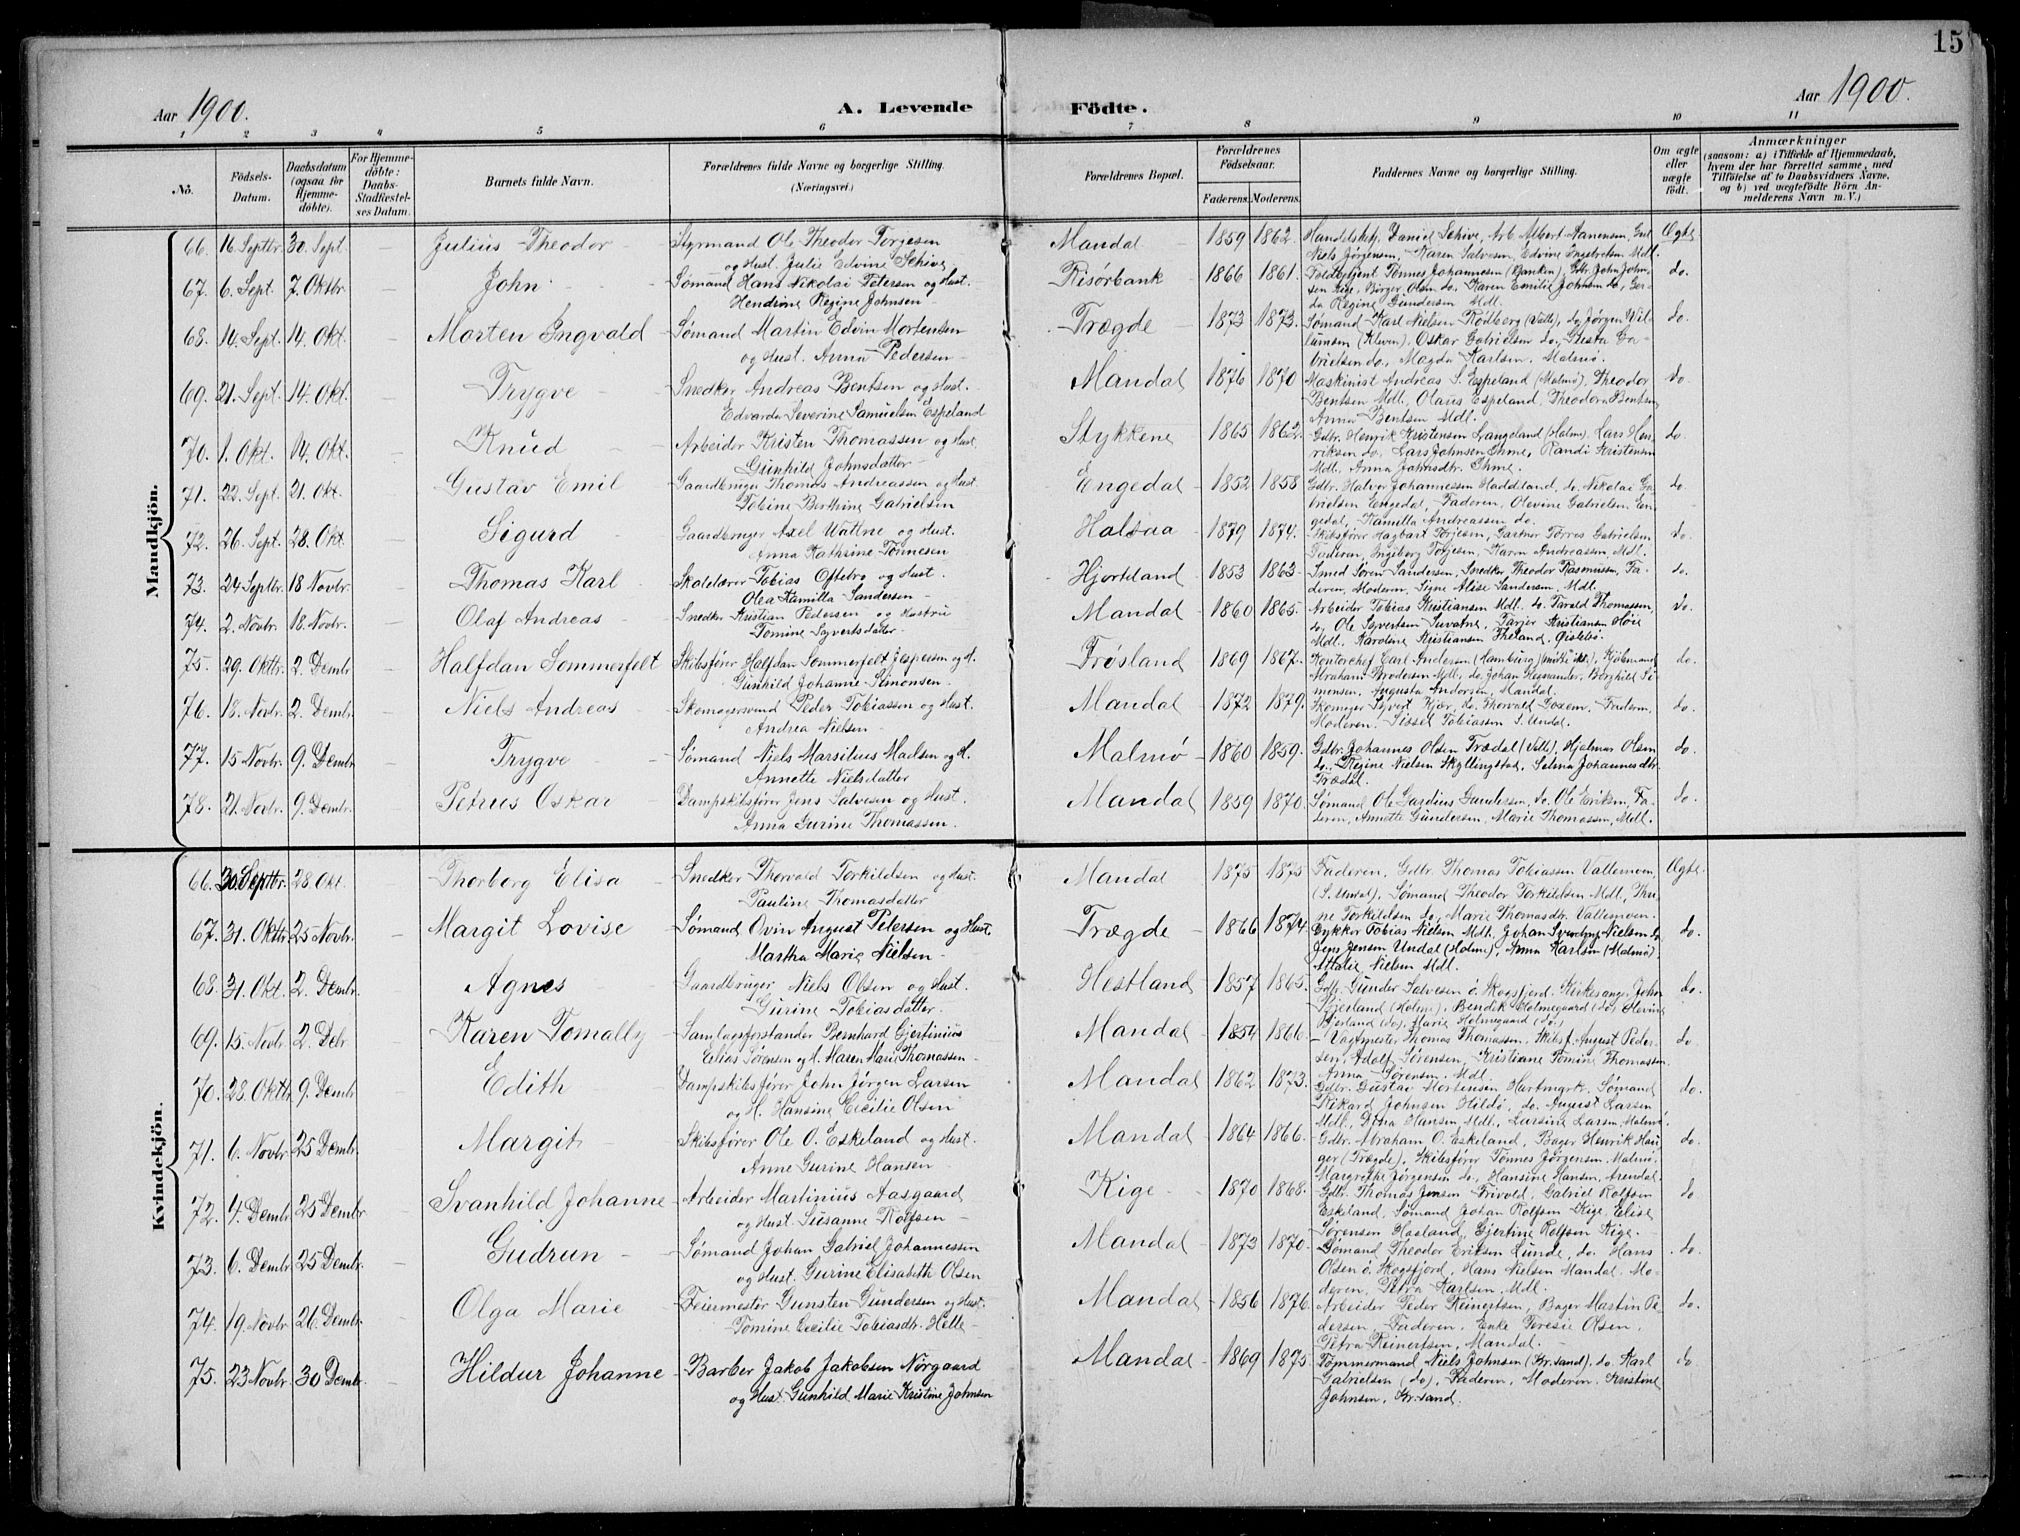 15
Aar 1900.
A. Levende Födte.
Aar 1900.
1 2 3 4 5 6 7 8 9 10 11
No.
Födsels-Datum.
Daabsdatum (ogsaa for Hjemmedöbte).
For Hjemmedöbte: Daabs-Stadfæstelses Datum.
Barnets fulde Navn.
Forældrenes fulde Navne og borgerlige Stilling. (Næringsvei.)
Forældrenes Bopæl.
Forældrenes Födselsaar.
Faderens. Moderens.
Faddernes Navne og borgerlige Stilling.
Om ægte eller uægte födt.
Anmærkninger
(saasom: a) i Tilfælde af Hjemmedaab, hvem der har forrettet samme, med Tilföielse af to Daabsvidners Navne, og b) ved uægtefödte Börn Anmelderens Navn m. V.)
Mandkjön.
66. 16 Septbr. 30. Sept. – Julius Theodor – Styrmand Ole Theodor Torgesen Mandal – 1859 1862. Daniel Schive, Arb. Albert Aanensen, Ægte
og Hust. Julie Edvine Schive. Niels Jørgensen, Karen Salvesen, Edvine Ingebretsen Mdl.
67. 6. Sept. 7. Oktbr. – John – Sømand Hans Nikolai Petersen og Hust. Risørbank – 1866 1861. Toldbetjent Tønnes Johannesen (Banken), Gdbr. John John- do.
Hendrine Regine Johnsen – sen Kige, Børger Olsen do. Karen Emilie Johnsen do,
Regine Gundersen Mdl.
68. 14. Sept. 14. Okt. – Morten Ingvald – Sømand Martin Edvin Mortensen Trægde – 1873 1873. Sømand Karl Nielsen Rødberg (Valle), do Jørgen Vil- do.
og Hust. Anna Pedersen – lumsen (Kleven), Oskar Gabrielsen do, Ga-
brielsen do, Magda Karlsen. Malmø.
69. 21. Sept. 14. Okt. – Trygve – Snedker Andreas Bentsen og Hust. Mandal 1876 1870 Maskinist Andreas S. Espeland (Malmø), Theodor do
Edvarda Severine Samuelsen Espeland Bentsen Mdl. Olaus Espeland, Theodora Bentsen,
Anna Bentsen Mdl.
70. 1. Okt. 14. Okt. – Knud – Arbeider Kristen Thomassen og Hust. Stykkene – 1865 1862. Gdbr. Henrik Kristensen Langeland (Holme), Lars Hen- do.
Gunhild Johnsdatter – riksen do, Lars Johnsen Ihme, Randi Kristensen
Mdl. Anna Johnsdtr. Ihme.
71. 22. Sept. 21. Okt. – Gustav Emil – Gaardbruger Thomas Andreassen og Hust. Engedal – 1852 1858 Gdbr. Halvor Johannessen Haddeland, do. Nikolai Ga- do
Tobine Berthine Gabrielsen brielsen Engedal, Faderen, Olevine Gabrielsen En-
gedal, Kamilla Andreassen do.
72. 26. Sept. 28. Okt. – Sigurd – Gaardbruger Axel Wattne og Hust. Halsaa – 1879 1874. Skibsfører Hagbart Torjesen, Gartner Torres Gabrielsen do.
Anna Kathrine Tønnesen Faderen, Ingeborg Torjesen, Karen Andreassen Mdl.
73. 24 Septbr. 18 Novbr. – Thomas Karl – Skolelærer Tobias Oftebro og Hust. Hjorteland – 1853 1863 – Smed Søren Sandersen, Snedker Theodor Rasmussen, Fa- do.
Olea Kamilla Sandersen – deren, Moderen, Signe Alise Sandersen, Mdl.
74. 2. Novbr. 18. Novbr. – Olaf Andreas – Snedker Kristian Pedersen og Hustru Mandal – 1860 1865. Arbeider Tobias Kristiansen Mdl. do. Tarald Thomassen, do.
Tomine Syvertsdatter – do, Ole Syvertsen Suvatne, Tarjer Kristiansen Høie
Mdl. Kardene Kristiansen Øislebø.
75. 29. Oktbr. 2. Dembr. – Halfdan Sommerfelt Skibsfører Halfdan Sommerfelt Jespersen og H. Frøsland – 1869 1867. Kontorchef Carl Andersen (Hamburg), Kjøbmand do.
Gunhild Johanne Simonsen. Abraham Brodersen Mdl, do. Johan Borghild Si-
monsen, Augusta Andersen, Mandal.
76. 18. Novbr. 2. Dembr. – Niels Andreas – Skomagersvend Peder Tobiassen og Hust. Mandal – 1872 1879. Skomager Syvert Kjær, do. Thorvald Faderen, do.
Andrea Nielsen – Moderen. Sissel Tobiassen S. Undal.
77. 15 Novbr. 9. Dembr. – Trygve – Sømand Niels Marsilius Madsen og H. Malmø – 1860 1859. Gdbr. Johannes Olsen Trædal (Valle), Hjalmar Olsen do.
Annette Nielsdatter do, Regine Nielsen Skyllingstad, Selma Johannesdtr.
Trædal.
78. 21. Novbr. 9. Dembr. – Petrus Oskar – Dampskibsfører Jens Salvesen og Hust. Mandal – 1859 1870. Sømand Ole Gardius Gundersen, do. Ole Eriksen, Fa- do.
Anna Gurine Thomassen. deren, Annette Gundersen, Marie Thomassen, Mdl.
Kvindekjön.
66. 30. Septbr. 28. Okt. – Thorborg Elisa – Snedker Thorvald Torkildsen og Hust. Mandal – 1875 1875 Faderen, Gdbr. Thomas Tobiassen Vallemoen, Ægte.
Pauline Thomasdatter (S. Undal), Sømand Theodor Torkildsen Mdl, Thri-
ne Torkildsen do, Marie Thomasdtr. Vallemoen.
67. 31. Oktbr. 25 Novbr. – Margit Lovise – Sømand Ovin August Petersen og Hust. Trægde – 1866 1874. Tobias Nielsen Mdl. Johan Nielsen do do.
Martha Marie Nielsen – Jens Jensen Undal (Holme), Anna Karlsen (Malmø)
Attalie Nielsen Mdl.
68. 31. Okt. 2. Dembr. – Agnes – Gaardbruger Niels Olsen og Hust. Hestland – 1857 1865. Gdbr. Gunder Salvesen ø. Skogsfjord. Kirkesanger John do.
Gurine Tobiasdatter. Bjerland (Holme), Bendik Holmegaard (do) Olevine
Bjerland (do), Marie Holmegaard (do.)
69. 15. Novbr. 2. Dbr. – Karen Tomally – Samlagsforstander Bernhard Gjertinius Mandal – 1854 1866. Vagtmester Thomas Thomassen, Skibsf. August Peder- do.
Elias Sørensen og H. Maren Marie Thomassen – sen, Adolf Sørensen, Kristiane Tomine Thomassen
Anna Sørensen. Mdl.
70. 28. Oktbr. 9. Dembr. – Edith – Dampskibsfører John Jørgen Larsen Mandal – 1862 1873. Gdbr. Gustav Mortensen Hartmgrk. Sømand do.
og H. Hansine Cecilie Olsen Rikard Johnsen Hildø, do. August Larsen
Mdl., Dina Hansen Mdl., Lursine Larsen, Malmø.
71. 6. Novbr. 25 Dembr. – Margit – Skibsfører Ole O. Eskeland og Hust. Mandal – 1864 1866. Gdbr. Abraham O. Eskeland, Bager Henrik Hau- do.
Anne Gurine Hansen – ger (Trægde), Skibsfører Tønnes Jørgensen. Malmø.
Margrethe Jørgensen do, Hansine Hansen, Arendal.
72. 4. Dembr. 25 Dembr. – Svanhild Johanne – Arbeider Martinius Aasgaard Kige – 1870 1868. Gdbr. Thomas Jensen Frivold, Gabriel Rolfsen do
og Hust. Susanne Rolfsen – Eskeland, Sømand Johan Rolfsen Kige, Elise
Sørensen Haaland, Gjertine Rolfsen Kige.
73. 6. Dembr. 25 Dembr. – Gudrun – Sømand Johan Gabriel Johannessen Mandal – 1873 1870. Sømand Theodor Eriksen Lunde, do. Hans do.
og Hust. Gurine Elisabeth Olsen Olsen ø. Skogsfjord, Hans Nielsen Mandal. Mo-
deren, Petra Karlsen, Mdl.
74. 19. Novbr. 26. Dembr. – Olga Marie – Feiermester Gunsten Gundersen og Hust. Mandal – 1856 1876. Arbeider Peder Reinertsen, Bager Martin Pe- do.
Tomine Cecilie Tobiasdtr. Helle – dersen, Faderen, Enke Teresie Olsen,
Petra Reinertsen, Mandal.
75. 23 Novbr. 30 Dembr. – Hildur Johanne – Barber Jakob Jakobsen Norgaard Mandal – 1869 1875 Tømmermand Niels Johnsen (Kr.sand), do. Karl do
og Hust. Gunhild Marie Kristine Johnsen Gabrielsen (do), Faderen, Moderen, Kristine
Johnsen, Kr.sand.